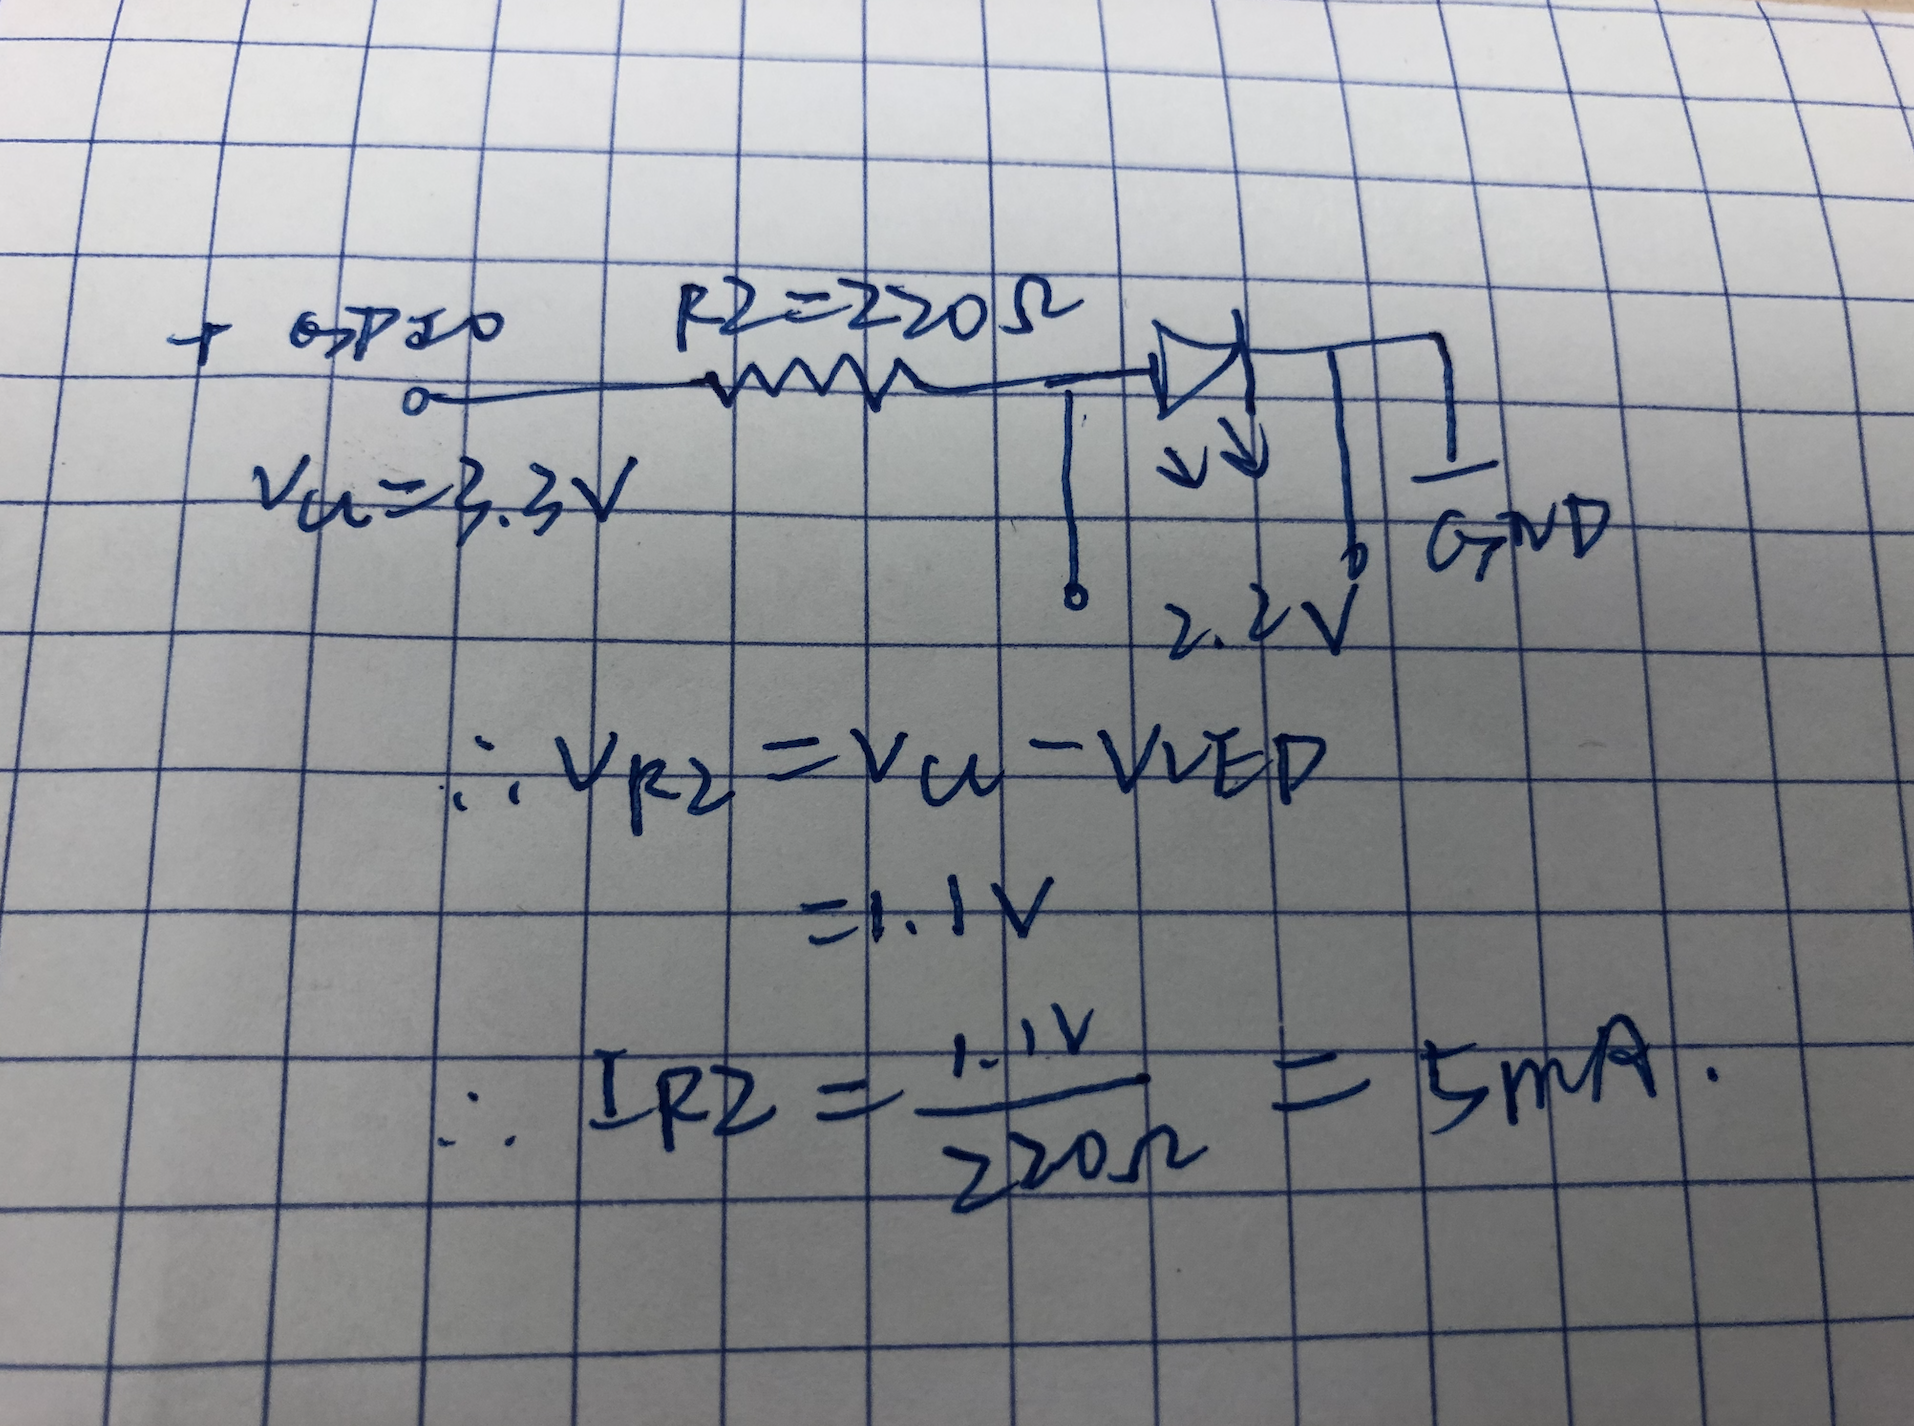 + GPIO
R2=220Ω
Vcc=3.3V
GND
2.2V
∴ VR2 = Vcc - VLED
=1.1V
∴ IR2 = 1.1V / 220Ω = 5mA.